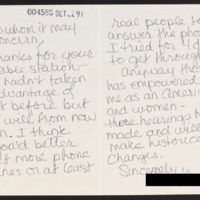 004580 OCT 91
whom it may
concern,
hanks for yours
station-
hadn't taken
advantage of
it before but
will from now
on. I think
would better
if more phone
lines or at least
real people to
answer the phone
I tried for 4 d
to get through
Anyway that
has empowered
me as an American
and women-
those hearings
made and will
make historical
Changes.
Sincerely